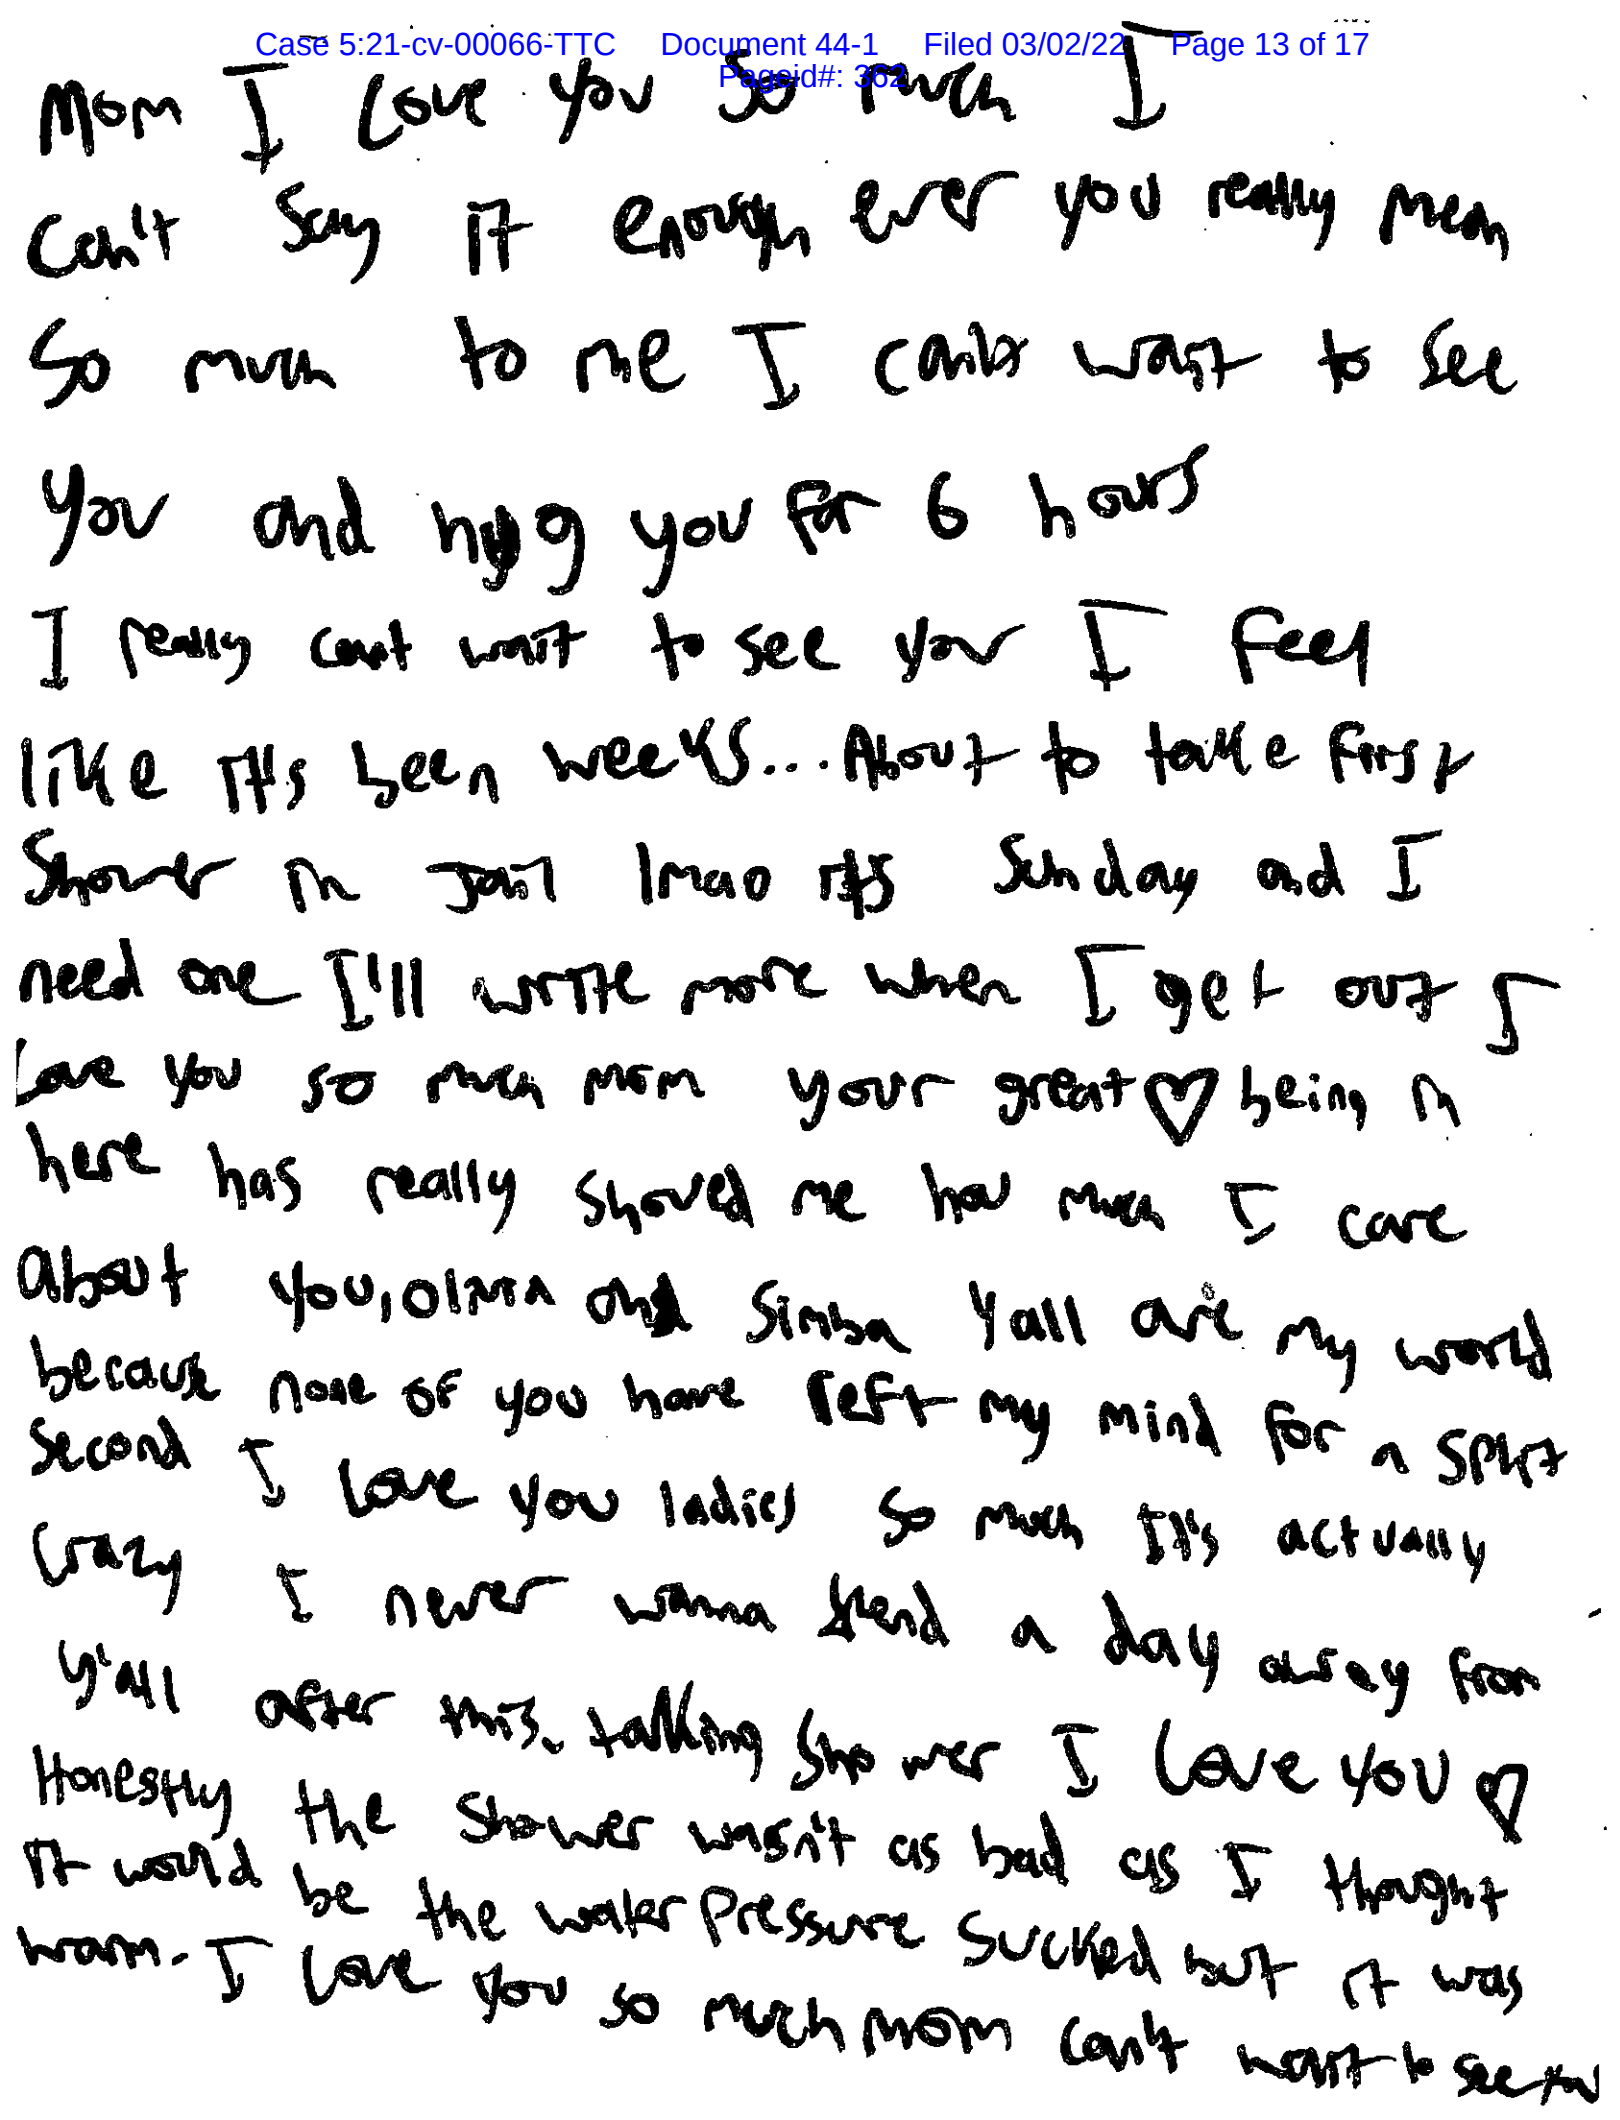 Case 5:21-cv-00066-TTC Document 44-1 Filed 03/02/22 Page 13 of 17
Pageid#: 362
Mom I Love you so much I
can't say it enough ever you really mean
So much to me I can't wait to see
you and hug you for 6 hours
I really can't wait to see you I feel
like it's been weeks... About to take first
Shower in Jail lmao it's Sunday and I
need one I'll write more when I get out I
Love you so much mom your great ♡ being in
here has really showed me how much I care
About you, and Simba Yall are my world
because none of you have left my mind for a split
second I Love you ladies so much It's actually
Crazy I never wanna spend a day away from
y'all after this. talking Shower I Love you ♡
Honestly the shower wasn't as bad as I thought
it would be the water pressure sucked but it was
warm. I Love you so much mom can't wait to see you